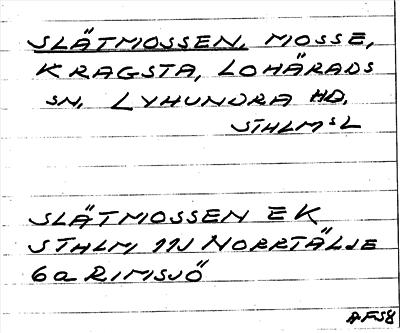 SLÄTMOSSEN, MOSSE,
KRAGSTA, LOHÄRADS
SN, LYHUNDRA HD.
STHLMS L
SLÄTMOSSEN EK
STHLM 11J NORRTÄLJE
6a RIMSJÖ
AFS8